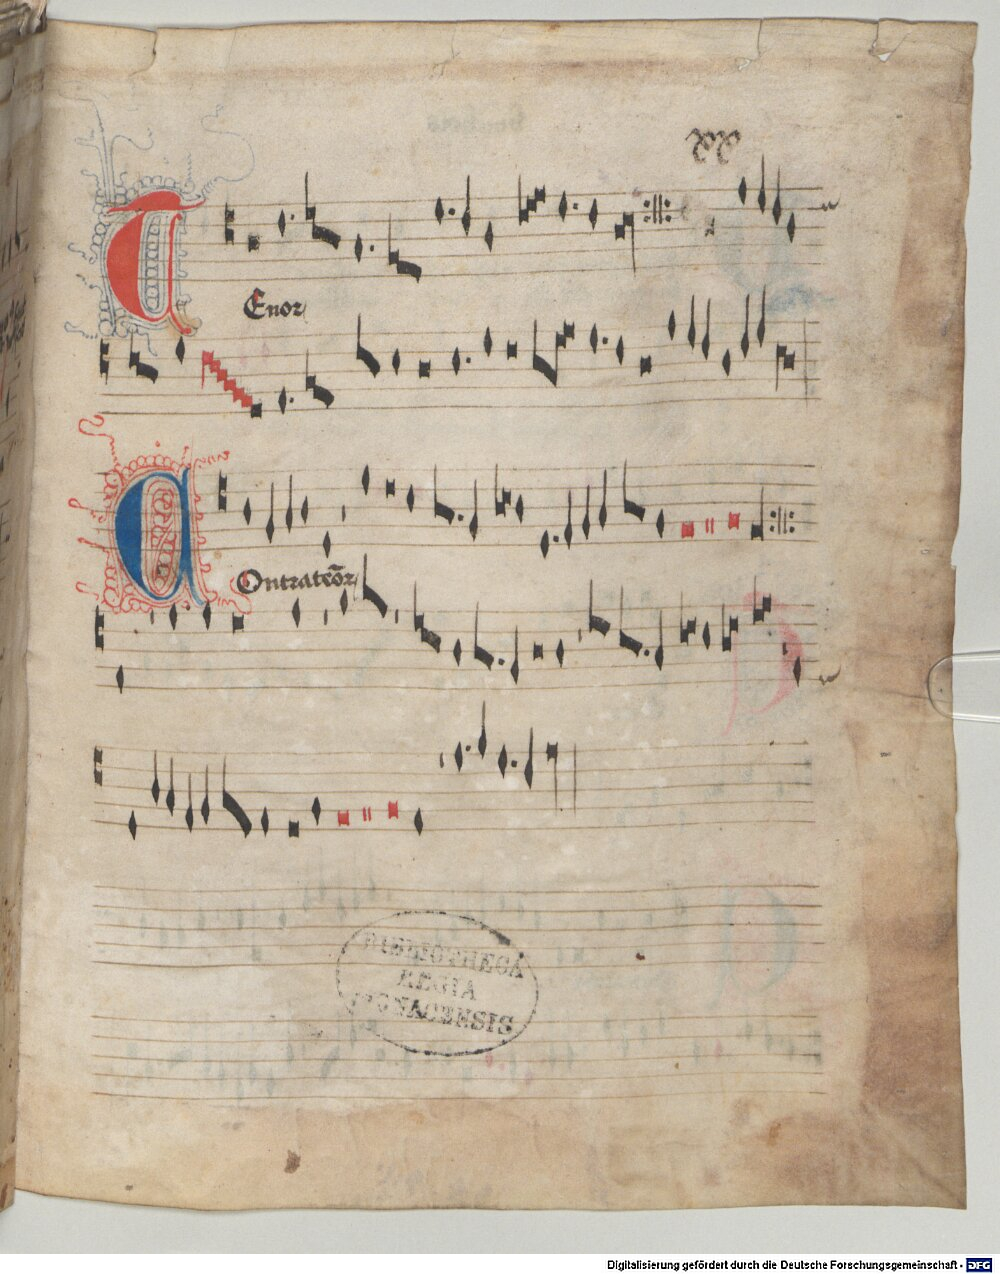 xx
Tenor
Contrateor
BIBLIOTHECA
REGIA
MONACENSIS
Digitalisierung gefördert durch die Deutsche Forschungsgemeinschaft - DFG